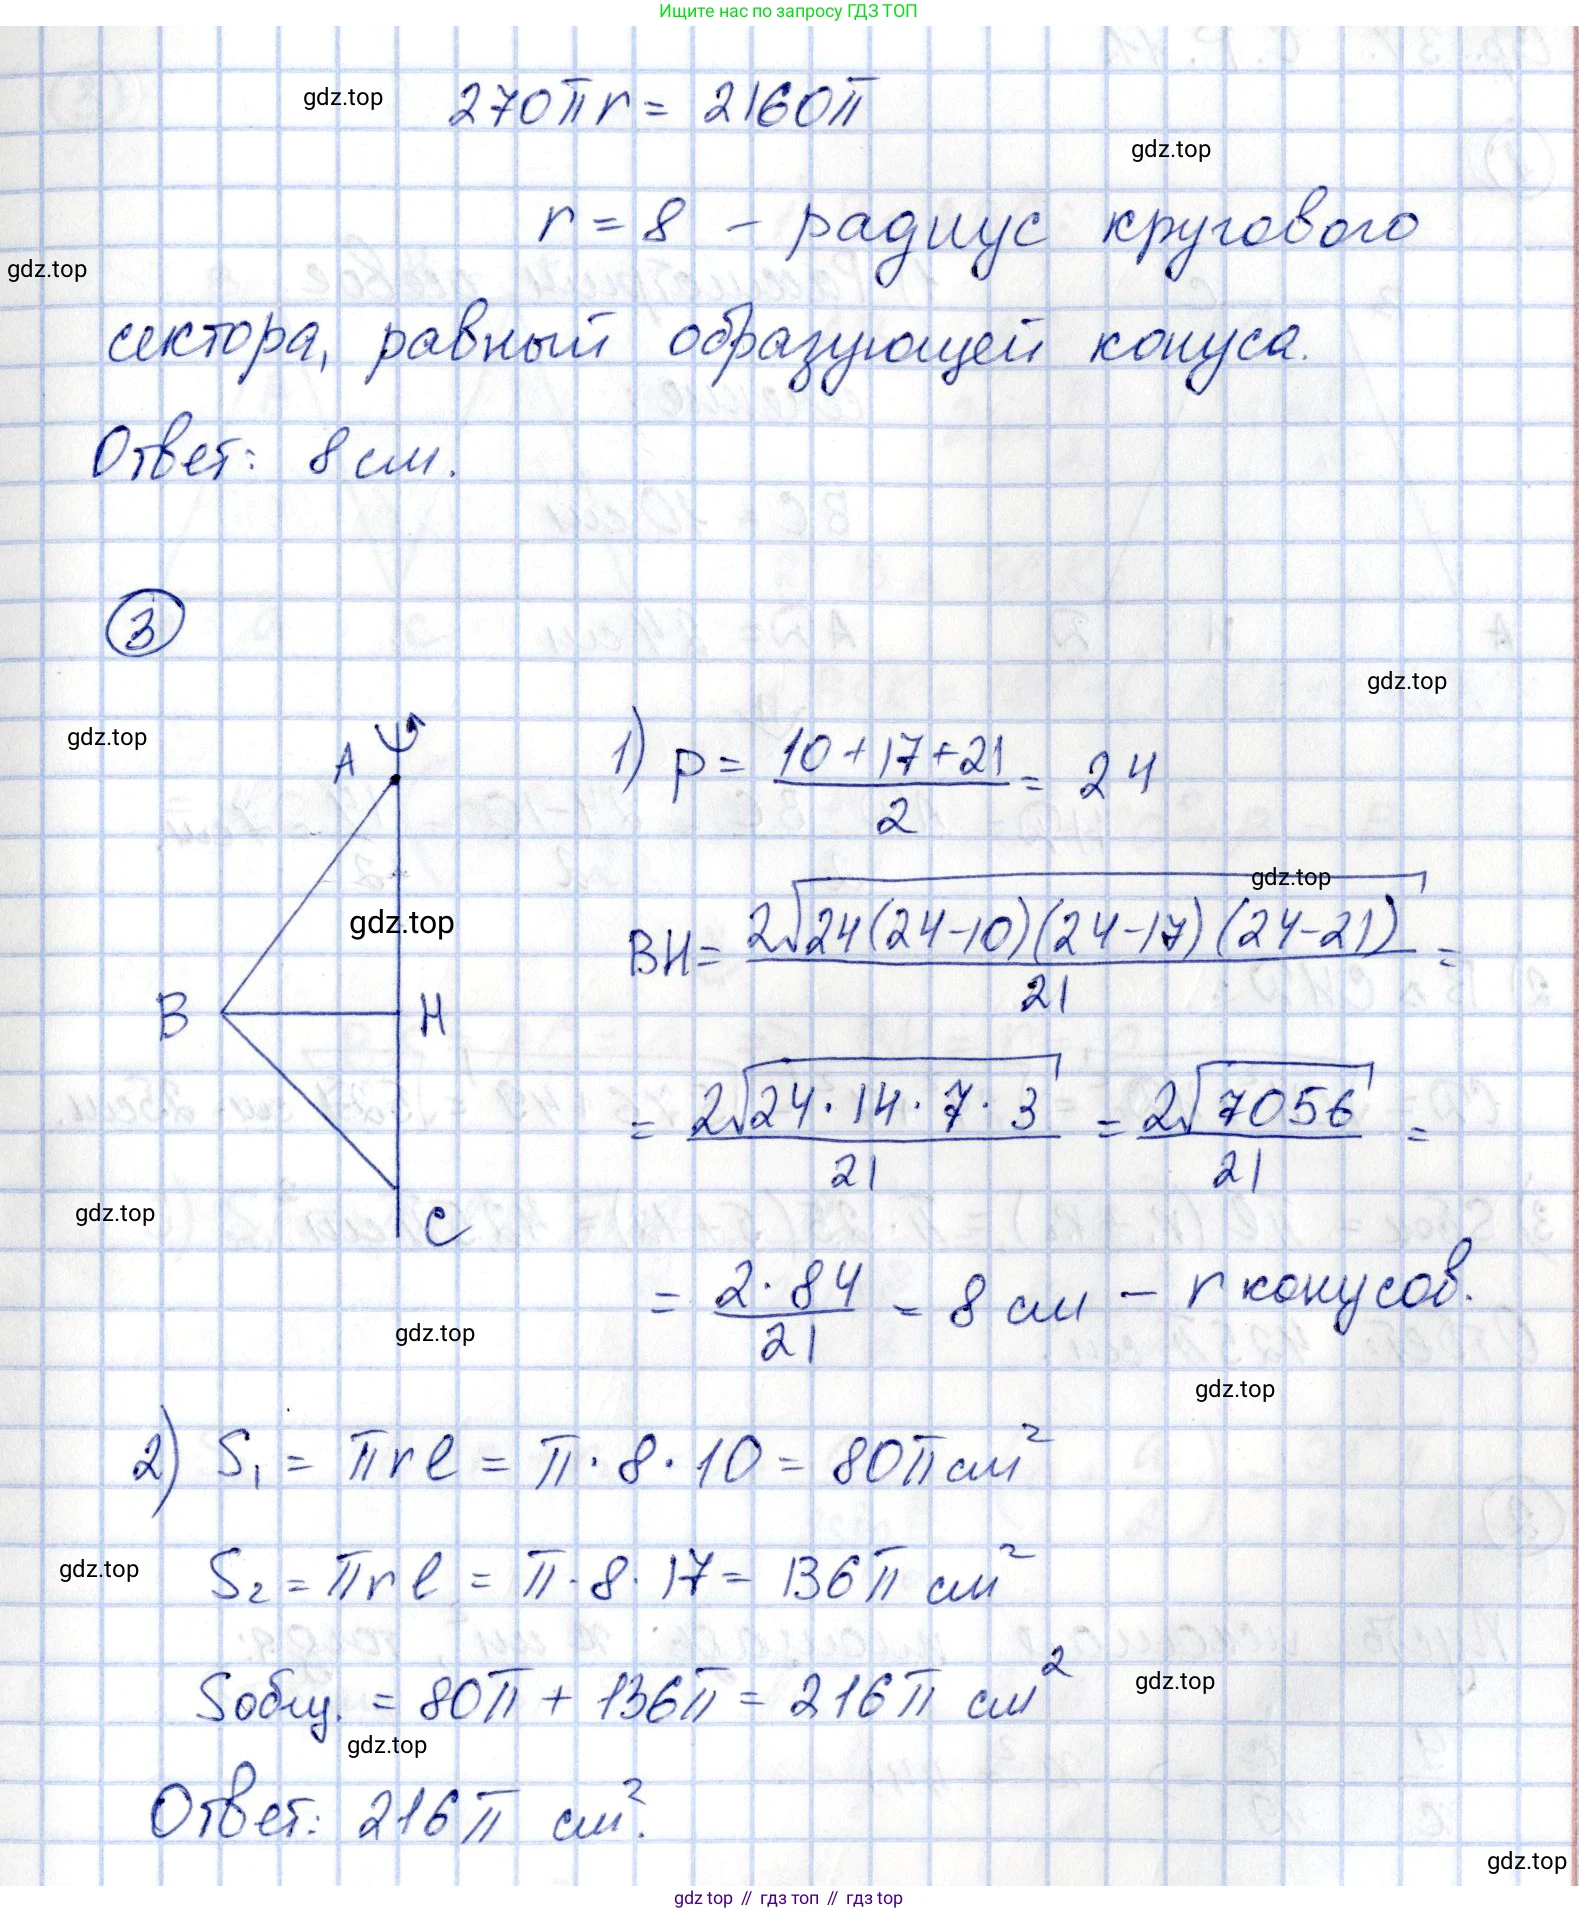 Ищите нас по запросу ГДЗ ТОП
gdz.top
270πr = 2160π
gdz.top
r = 8 – радиус кругового
gdz.top
сектора, равный образующей конуса.
Ответ: 8 см.
3
gdz.top
gdz.top
A
1) p = (10+17+21)/2 = 24
gdz.top
gdz.top
BH = 2√(24(24-10)(24-17)(24-21))/21 =
B H
= 2√(24·14·7·3)/21 = 2√7056/21 =
gdz.top
C
= 2·84/21 = 8 см – r конусов.
gdz.top
gdz.top
2) S₁ = πrl = π·8·10 = 80π см²
gdz.top
S₂ = πrl = π·8·17 = 136π см²
Sобщ. = 80π + 136π = 216π см²
gdz.top
gdz.top
Ответ: 216π см².
gdz.top
gdz top // гдз топ // гдз top